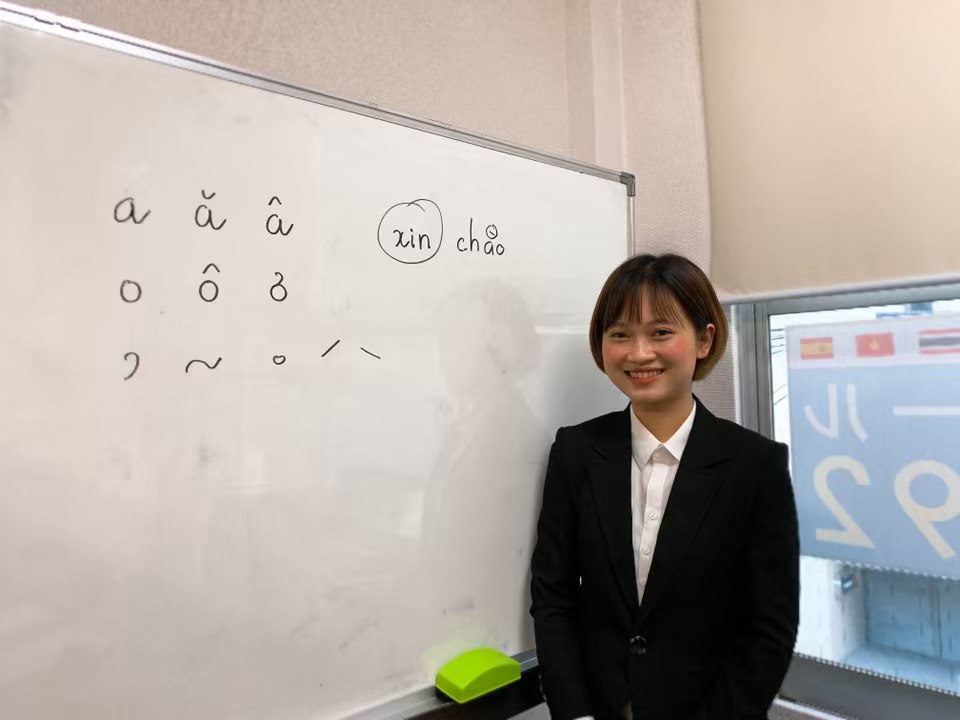 a ă â xin chào
o ô ơ
̉ ~ ° ´ `
ール
92